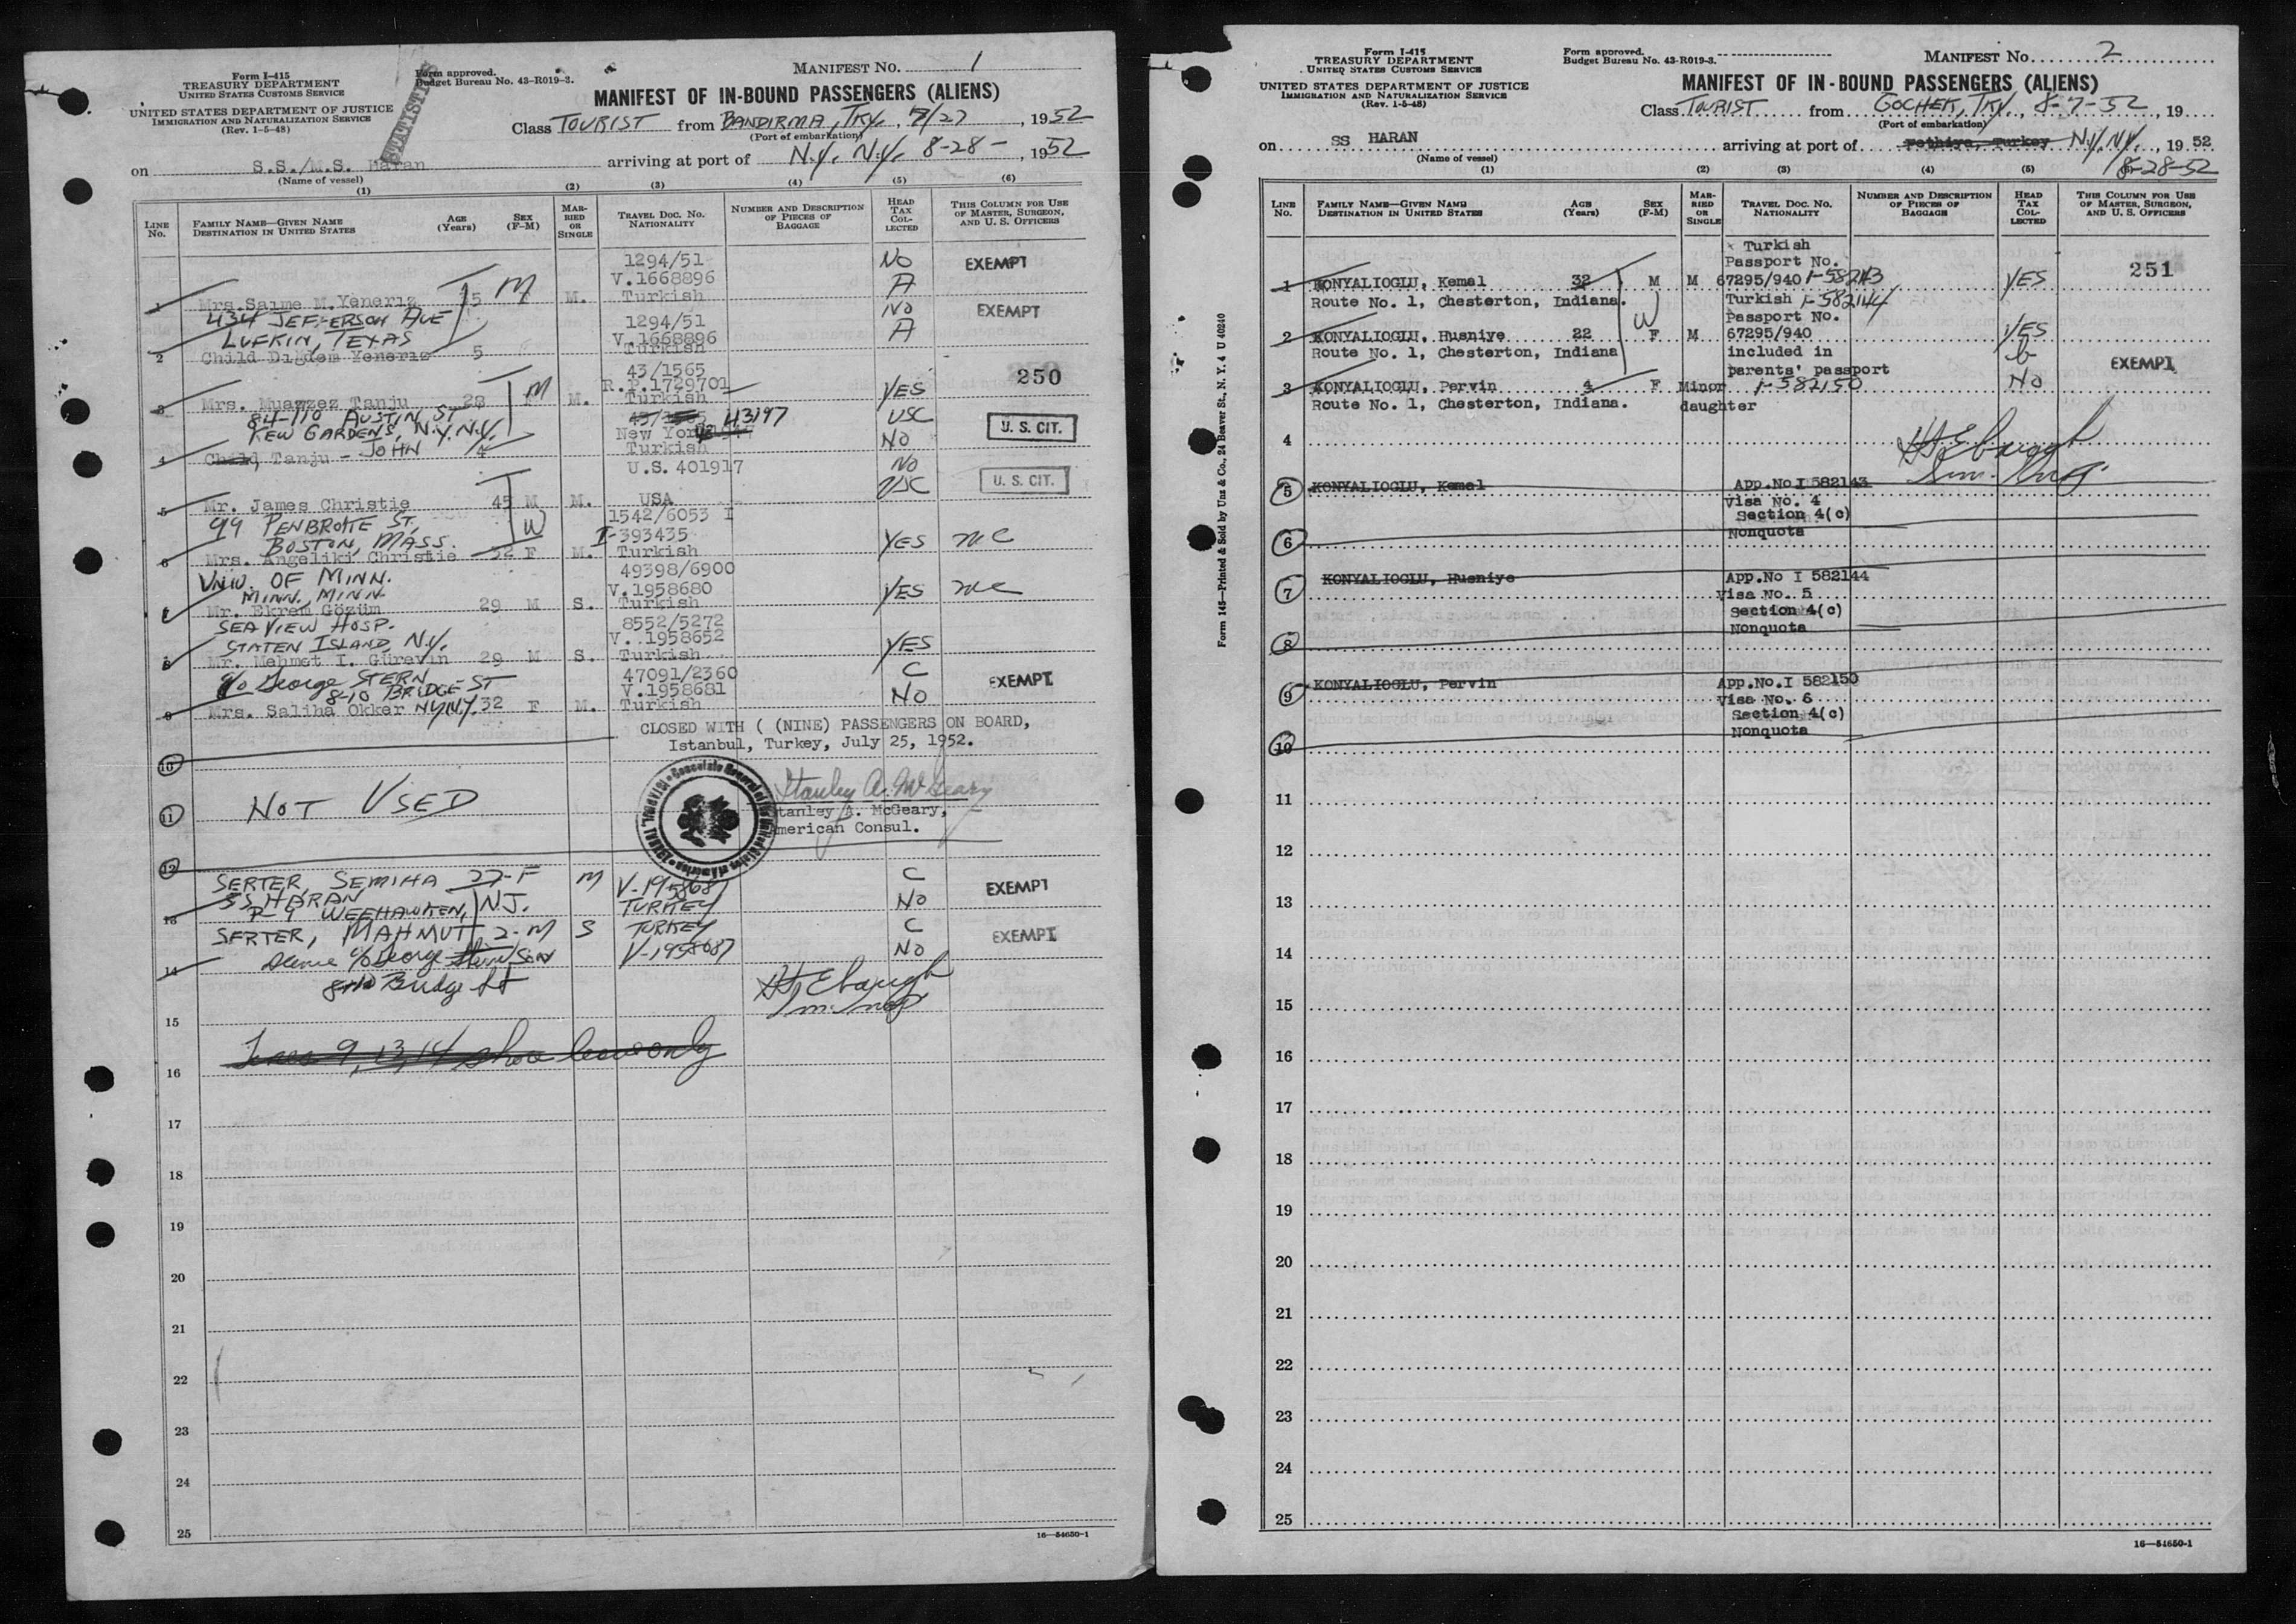 Form I-415
TREASURY DEPARTMENT
UNITED STATES CUSTOMS SERVICE
UNITED STATES DEPARTMENT OF JUSTICE
IMMIGRATION AND NATURALIZATION SERVICE
(Rev. 1-5-48)
Form approved.
Budget Bureau No. 43-R019-3.
STATISTICS
MANIFEST NO. 1
MANIFEST OF IN-BOUND PASSENGERS (ALIENS)
Class TOURIST from BANDIRMA, TKY, 7/27, 1952
(Port of embarkation)
on S.S./M.S. Haran arriving at port of N.Y. N.Y. 8-28-, 1952
(Name of vessel)
(1) (2) (3) (4) (5) (6)
LINE No. FAMILY NAME—GIVEN NAME DESTINATION IN UNITED STATES AGE (Years) SEX (F-M) MARRIED OR SINGLE TRAVEL DOC. NO. NATIONALITY NUMBER AND DESCRIPTION OF PIECES OF BAGGAGE HEAD TAX COLLECTED THIS COLUMN FOR USE OF MASTER, SURGEON, AND U. S. OFFICERS
1294/51 NO EXEMPT
V.1668896 A
1 Mrs. Saime M. Yeneriz 25 M M. Turkish NO EXEMPT
434 JEFFERSON AVE 1294/51 A
LUFKIN, TEXAS V.1668896
2 Child Digdem Yeneriz 5 Turkish
43/1565 250
R.P.1729701 YES
3 Mrs. Muazzez Tanju 28 M M. Turkish
84-110 AUSTIN ST 43197 USC U. S. CIT.
KEW GARDENS, N.Y. N.Y. New York NO
4 Child, Tanju - JOHN 4 Turkish
U.S. 401917 NO
USC U. S. CIT.
5 Mr. James Christie 45 M M. USA
99 PENBROKE ST. 1542/6053 I
BOSTON, MASS. W I-393435 YES NC
6 Mrs. Angeliki Christie 32 F M. Turkish
UNIV. OF MINN. 49398/6900
MINN. MINN. V.1958680 YES NC
7 Mr. Ekrem Gözüm 29 M S. Turkish
SEA VIEW HOSP. 8552/5272
STATEN ISLAND, N.Y. V.1958652 YES
8 Mr. Mehmet I. Gürevin 29 M S. Turkish
c/o George STERN 47091/2360 C EXEMPT
8-10 BRIDGE ST V.1958681 NO
9 Mrs. Saliha Okker NY NY. 32 F M. Turkish
CLOSED WITH ( (NINE) PASSENGERS ON BOARD,
Istanbul, Turkey, July 25, 1952.
10
11 NOT USED
Stanley A. McGeary
Stanley A. McGeary,
American Consul.
12
SERTER, SEMIHA 27-F M V-1958687 C EXEMPT
SS HARAN TURKEY NO
13 P-9 WEEHAWKEN, NJ.
SERTER, MAHMUT 2-M S TURKEY C EXEMPT
Same c/o George Stern SON V-1958687 NO
14
8-10 Bridge St
H Ebaugh
Im. Insp
15
Lines 9, 13, 14 shore leave only
16
17
18
19
20
21
22
23
24
25
16—54650-1
Form I-415
TREASURY DEPARTMENT
UNITED STATES CUSTOMS SERVICE
UNITED STATES DEPARTMENT OF JUSTICE
IMMIGRATION AND NATURALIZATION SERVICE
(Rev. 1-5-48)
Form approved.
Budget Bureau No. 43-R019-3.
MANIFEST NO. 2
MANIFEST OF IN-BOUND PASSENGERS (ALIENS)
Class TOURIST from GOCHEK, TKY., 8-7-52, 19
(Port of embarkation)
on SS HARAN arriving at port of Fethiye, Turkey N.Y. N.Y., 19 52
(Name of vessel) 8-28-52
(1) (2) (3) (4) (5)
LINE No. FAMILY NAME—GIVEN NAME DESTINATION IN UNITED STATES AGE (Years) SEX (F-M) MARRIED OR SINGLE TRAVEL DOC. NO. NATIONALITY NUMBER AND DESCRIPTION OF PIECES OF BAGGAGE HEAD TAX COLLECTED THIS COLUMN FOR USE OF MASTER, SURGEON, AND U. S. OFFICERS
Turkish
Passport No. 251
1 KONYALIOGLU, Kemal 32 M M 67295/940 I-582143 YES
Route No. 1, Chesterton, Indiana. Turkish I-582144
W Passport No.
2 KONYALIOGLU, Husniye 22 F M 67295/940 YES
Route No. 1, Chesterton, Indiana included in
parents' passport EXEMPT
3 KONYALIOGLU, Pervin 4 F Minor I-582150 NO
Route No. 1, Chesterton, Indiana. daughter
4
H Ebaugh
Imm. Insp
5 KONYALIOGLU, Kemal App.No I 582143
Visa No. 4
Section 4(c)
6 Nonquota
KONYALIOGLU, Husniye App.No I 582144
7 Visa No. 5
Section 4(c)
8 Nonquota
9 KONYALIOGLU, Pervin App.No.I 582150
Visa No. 6
Section 4(c)
10 Nonquota
11
12
13
14
15
16
17
18
19
20
21
22
23
24
25
16—54650-1
Form 145—Printed & Sold by Unz & Co., 24 Beaver St., N. Y. 4 U 40240